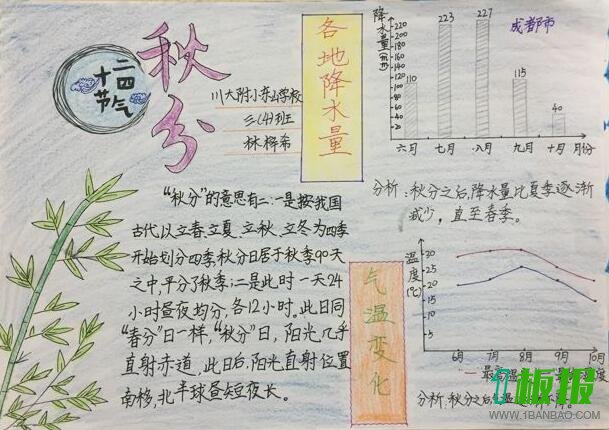 二四
十节气
秋分
川大附小东山学校
三(4)班
林桦希
各地降水量
"秋分"的意思有二:一是按我国
古代以立春、立夏、立秋、立冬为四季
开始划分四季,秋分日居于秋季90天
之中,平分了秋季;二是此时一天24
小时昼夜均分,各12小时。此日同
"春分"日一样,"秋分"日,阳光几乎
直射赤道,此日后,阳光直射位置
南移,北半球昼短夜长。
成都市
降水量(mm)
220
200
180
160
140
120
100
80
60
40
20
110
223
227
115
40
六月 七月 八月 九月 十月 月份
分析:秋分之后,降水量比夏季逐渐
减少,直至春季。
气温变化
温度(℃)
30
25
20
15
6月 7月 8月 9月 10月
分析:秋分之后
板报
WWW.1BANBAO.COM